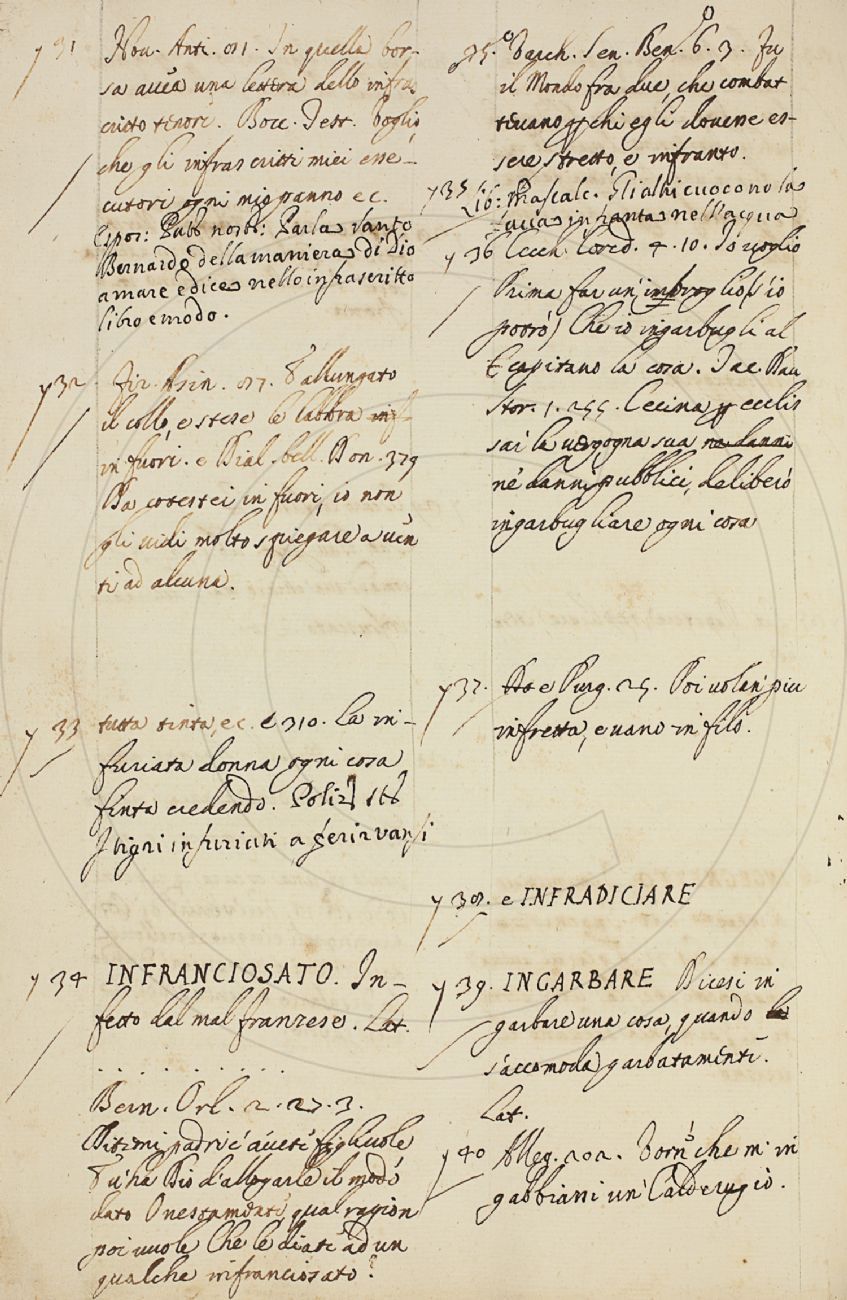 31 Nou. Anti. 81. In quella bor-
sa aueà una lettera dello infra
critto tenore. Bocc. Test. Voglio
che gli infrascritti miei esse-
cutori ogni mio panno ec.
Espos: Patt nost: Parla Santo
Bernardo della maniera di Dio
amare e dice nello infrascritto
libro e modo.
32 Fir. Asin. 87. S'allungato
il collo, e stese le labbra inf
in fuori. e Dial. bell. Don. 379
Da cotestei in fuori, io non
gli uidi molto spiegare auen
ti ad alcuna.
33 tutta tinta, ec. e 310. La in-
furiata donna ogni cosa
finta credendo. Poliz St
I tigri infuriati a ferir vansi
34 INFRANCIOSATO. In-
fetto dal mal franzese. Lat.
. . . . . . . . . .
Bern. Orl. 2. 27. 3.
Ditemi padri c'auete figliuole
S'u'ha Dio d'allogarle il modo
dato Onestamente qual ragion
poi uuole Che le diate ad un
qualche infranciosato?
35. Varch. Sen. Ben. 6. 3. Fu
il Mondo fra due, che combat
teuano p chi egli douesse es-
sere stretto, e infranto.
35 Lib: Mascalc. Gli altri cuocono la
in franta nell'acqua
36 Cecch. Cored. 4. 10. Io uoglio
Prima far un' imbroglio (s'io
potrò) Che io ingarbugli al
Capitano la cosa. Dau
Stor. 1. 255. Cecina p
sar la uergogna sua ne danni
ne danni pubblici, deliberò
ingarbugliare ogni cosa
37. Da e Purg. 24. Poi uolan piu
in fretta, e uano in filo.
38. e INFRADICIARE
39. INGARBARE Dicesi in
garbare una cosa, quando la
s'accomoda garbatamente.
Lat.
40 Alleg. 202. Torno che m' in
gabbiani un Calderugio.